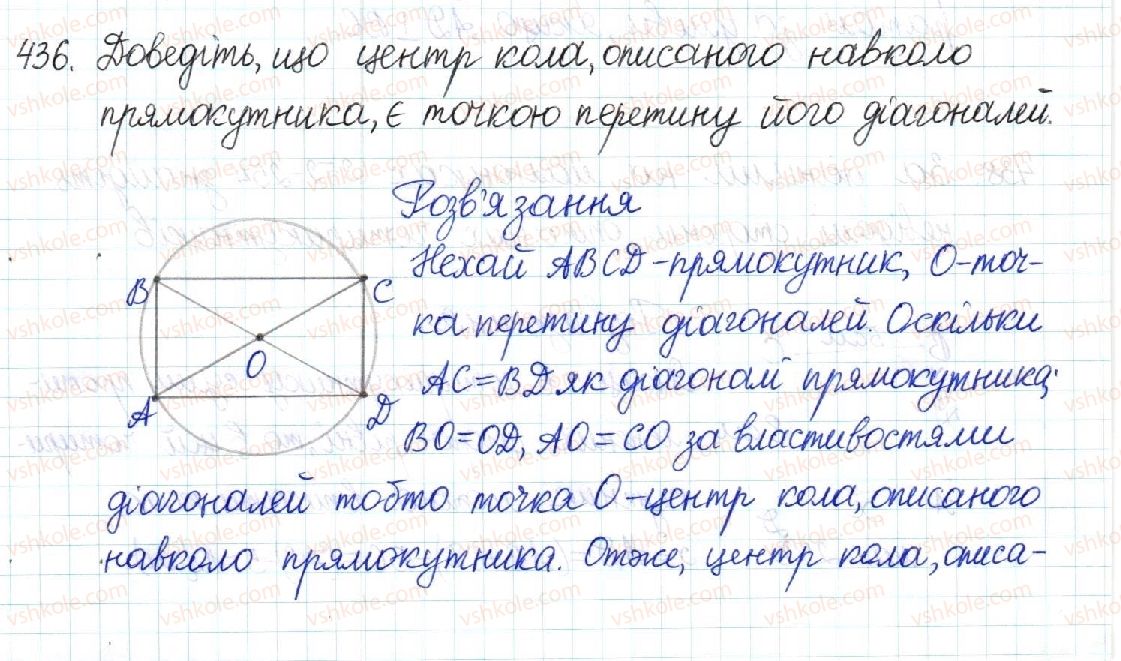 436. Доведіть, що центр кола, описаного навколо
прямокутника, є точкою перетину його діагоналей.
Розв'язання
Нехай ABCD - прямокутник, O - точ-
ка перетину діагоналей. Оскільки
AC = BD як діагоналі прямокутника;
BO = OD, AO = CO за властивостями
діагоналей тобто точка O - центр кола, описаного
навколо прямокутника. Отже, центр кола, описа-
B
C
O
A
D
vshkole.com